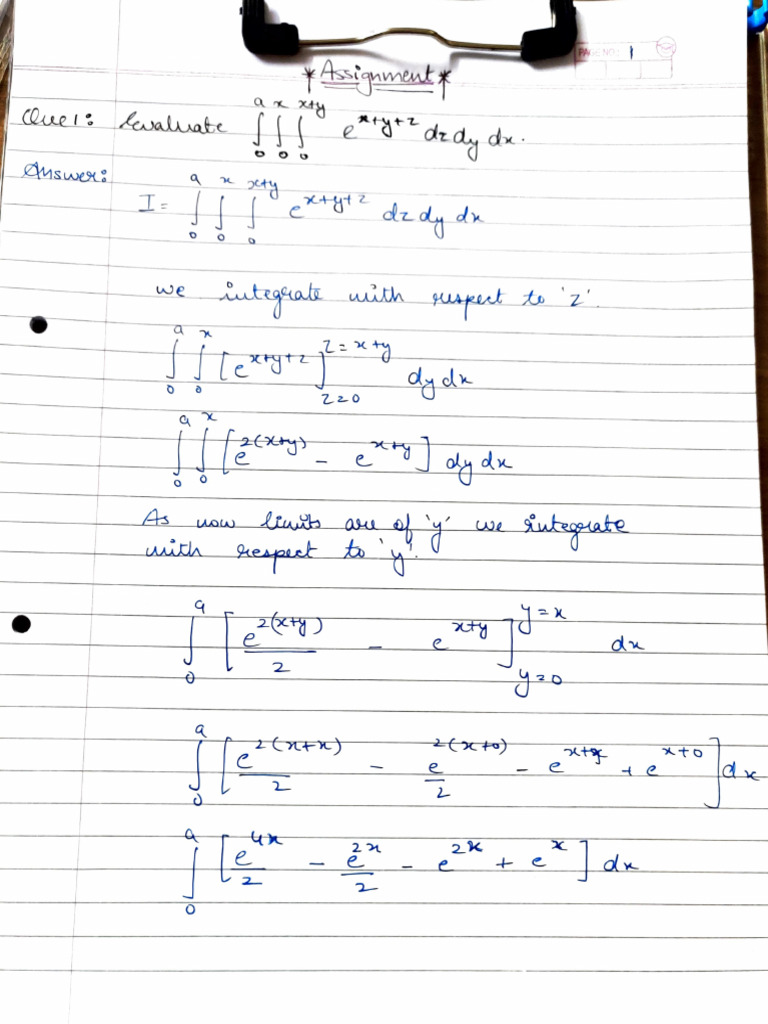 PAGE NO: 1
*Assignment*
Que1: Evaluate ∫₀ᵃ ∫₀ˣ ∫₀ˣ⁺ʸ e^(x+y+z) dz dy dx.
Answer: I = ∫₀ᵃ ∫₀ˣ ∫₀ˣ⁺ʸ e^(x+y+z) dz dy dx
we integrate with respect to 'z'.
∫₀ᵃ ∫₀ˣ [e^(x+y+z)]_(z=0)^(z=x+y) dy dx
∫₀ᵃ ∫₀ˣ [e^(2(x+y)) - e^(x+y)] dy dx
As now limits are of 'y' we integrate
with respect to 'y'.
∫₀ᵃ [e^(2(x+y))/2 - e^(x+y)]_(y=0)^(y=x) dx
∫₀ᵃ [e^(2(x+x))/2 - e^(2(x+0))/2 - e^(x+x) + e^(x+0)] dx
∫₀ᵃ [e^(4x)/2 - e^(2x)/2 - e^(2x) + e^x] dx